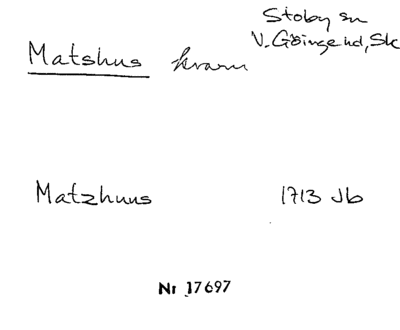 Stoby sn
V. Göinge hd, Sk
Matshus kvarn
Matzhuus 1713 Jb
Nr 17697